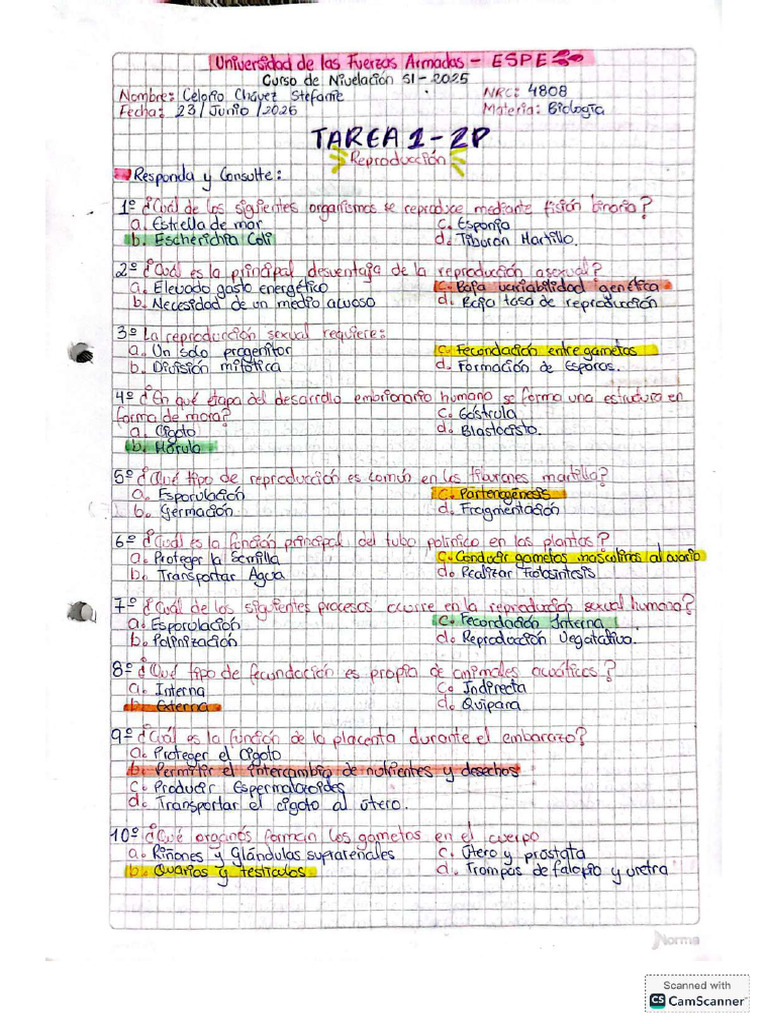 Universidad de las Fuerzas Armadas - ESPE
Curso de Nivelación SI - 2025
Nombre: Celorio Chávez Stefanie NRC: 4808
Fecha: 23/Junio/2025 Materia: Biología
TAREA 1 - 2P
Reproducción
Responda y Consulte:
1º ¿Cuál de los siguientes organismos se reproduce mediante fisión binaria?
a. Estrella de mar c. Esponja
b. Escherichia Coli d. Tiburon Martillo.
2º ¿Cuál es la principal desventaja de la reproducción asexual?
a. Elevado gasto energético c. Baja variabilidad genética
b. Necesidad de un medio acuoso d. Baja tasa de reproducción
3º La reproducción sexual requiere:
a. Un solo progenitor c. Fecondación entre gametos
b. División mitótica d. Formación de Esporos.
4º ¿En qué etapa del desarrollo embrionario humano se forma una estructura en
forma de mora? c. Gástrula
a. Cigoto d. Blastocisto.
b. Mórula
5º ¿Qué tipo de reproducción es común en los tiburones martillo?
a. Esporulación c. Partenogénesis
b. Germación d. Fragmentación
6º ¿Cuál es la función principal del tubo polínico en las plantas?
a. Proteger la Semilla c. Conducir gametos masculinos al ovario
b. Transportar Agua d. Realizar Fotosíntesis
7º ¿Cuál de los siguientes procesos ocurre en la reproducción sexual humana?
a. Esporulación c. Fecondación Interna
b. Polinización d. Reproducción Vegatativo.
8º ¿Qué tipo de fecundación es propia de animales acuáticos?
a. Interna c. Indirecta
b. Externa d. Ovipara
9º ¿Cuál es la función de la placenta durante el embarazo?
a. Proteger el Cigoto
b. Permitir el intercambio de nutrientes y desechos
c. Producir Espermatozoides
d. Transportar el cigoto al útero.
10º ¿Qué organos forman los gametos en el cuerpo
a. Riñones y Glándulas suprarenales c. Útero y próstata
b. Ovarios y testículos d. Trompas de falopio y uretra
Norma
Scanned with
CS CamScanner